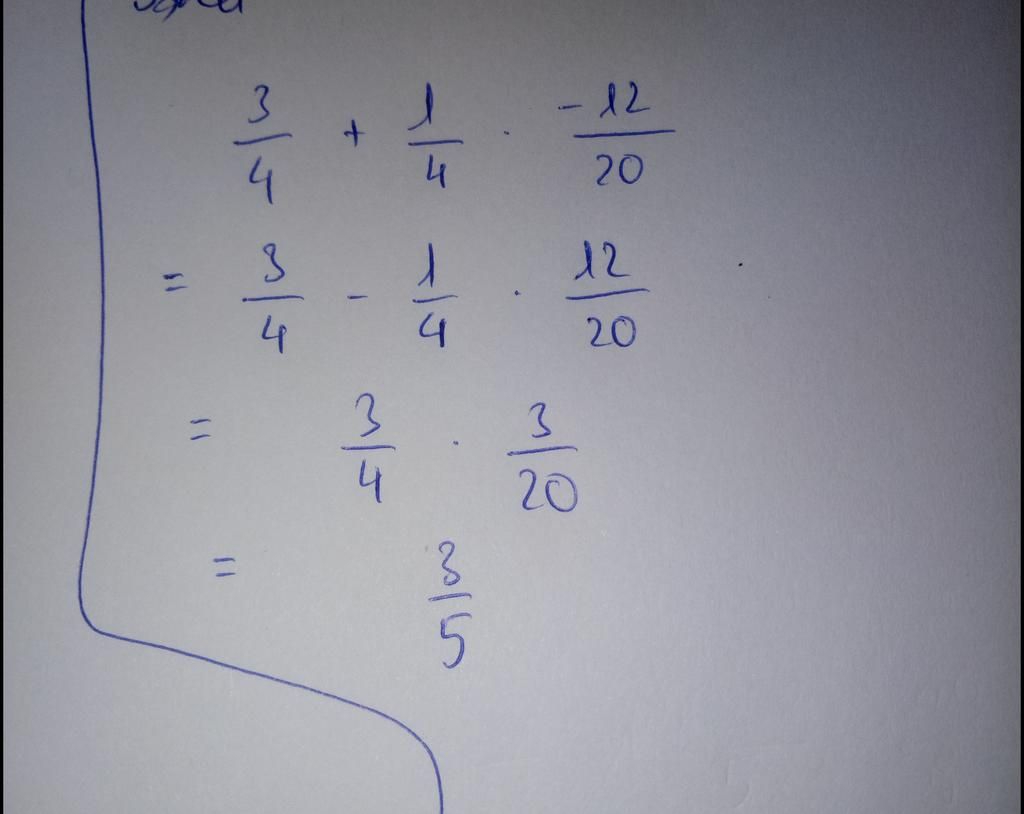 3/4 + 1/4 · -12/20
= 3/4 - 1/4 · 12/20
= 3/4 · 3/20
= 3/5